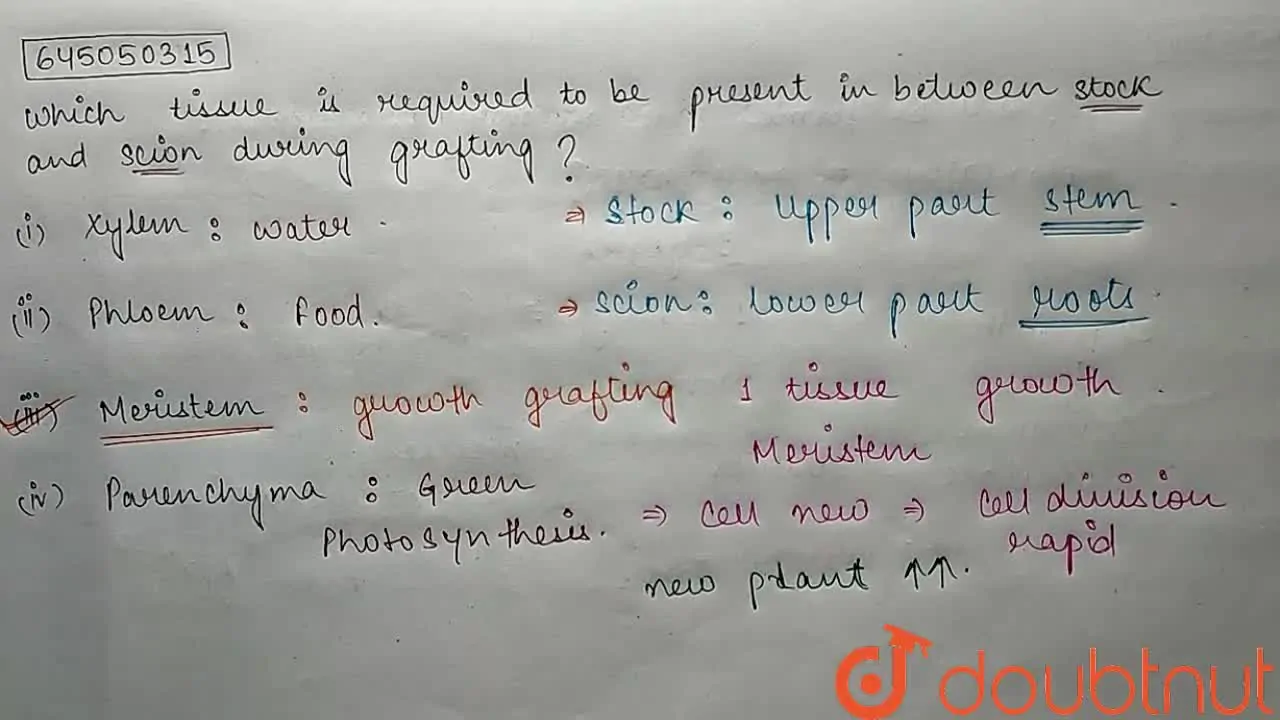 645050315
which tissue is required to be present in between stock
and scion during grafting ?
(i) Xylem : water .
⇒ Stock : Upper part stem .
(ii) Phloem : food.
⇒ scion : lower part roots .
(iii) Meristem : growth grafting 1 tissue growth .
Meristem
(iv) Parenchyma : Green
Photosynthesis.
⇒ cell new ⇒ cell division
rapid
new plant ↑↑.
doubtnut